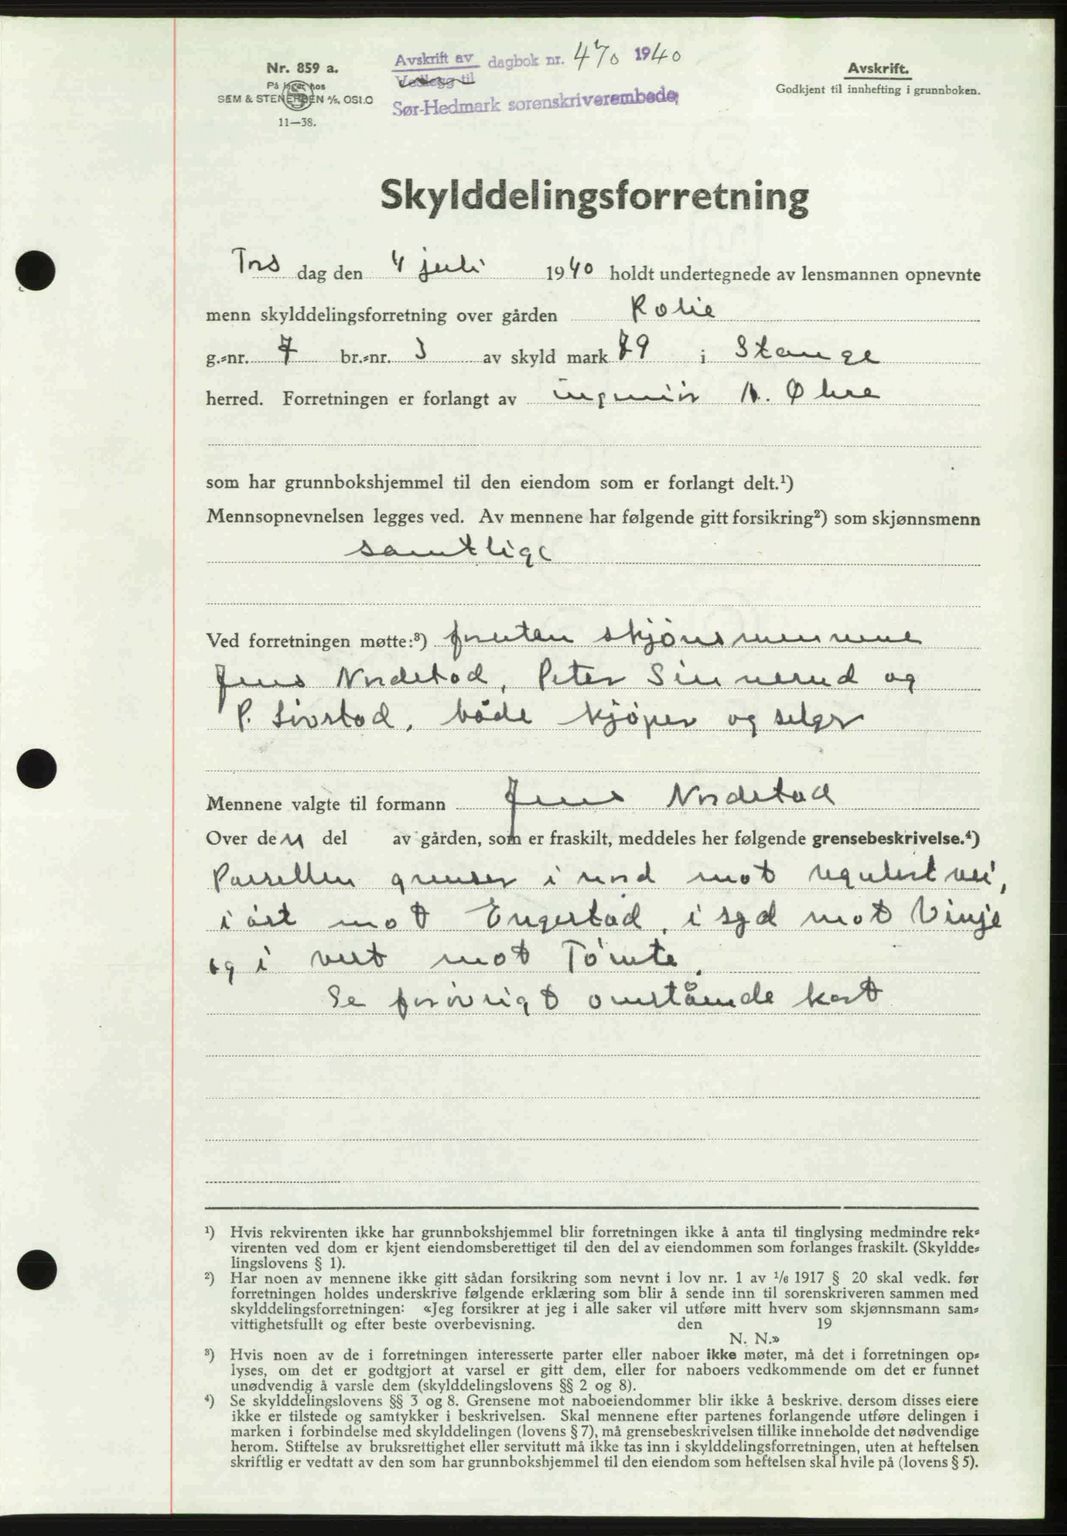 Nr. 859 a.
På lager hos
SEM & STENERSEN A/S, OSLO
11—38.
Avskrift av dagbok nr. 470 1940
Vedlegg til
Sør-Hedmark sorenskriverembede,
Avskrift.
Godkjent til innhefting i grunnboken.
Skylddelingsforretning
Tors dag den 4 juli 1940 holdt undertegnede av lensmannen opnevnte
menn skylddelingsforretning over gården
g.-nr. 7 br.-nr. 3 av skyld mark i Stange
herred. Forretningen er forlangt av ingeniör
som har grunnbokshjemmel til den eiendom som er forlangt delt.¹)
Mennsopnevnelsen legges ved. Av mennene har følgende gitt forsikring²) som skjønnsmenn
samtlige
Ved forretningen møtte:³) foruten skjönsmennene
Jens Nordstad, Peter Sinnerud og
P. Sivstad, både kjöper og selger
Mennene valgte til formann Jens Nordstad
Over den del av gården, som er fraskilt, meddeles her følgende grensebeskrivelse.⁴)
Parsellen grenser i nord mot regulert vei,
i öst mot Engestad, i syd mot Vinje
og i vest mot Tömte.
Se forövrigt omstående kart
¹) Hvis rekvirenten ikke har grunnbokshjemmel blir forretningen ikke å anta til tinglysing medmindre rek-
virenten ved dom er kjent eiendomsberettiget til den del av eiendommen som forlanges fraskilt. (Skyldde-
lingslovens § 1).
²) Har noen av mennene ikke gitt sådan forsikring som nevnt i lov nr. 1 av 1/6 1917 § 20 skal vedk. før
forretningen holdes underskrive følgende erklæring som blir å sende inn til sorenskriveren sammen med
skylddelingsforretningen: «Jeg forsikrer at jeg i alle saker vil utføre mitt hverv som skjønnsmann sam-
vittighetsfullt og efter beste overbevisning. den 19
N. N.»
³) Hvis noen av de i forretningen interesserte parter eller naboer ikke møter, må det i forretningen op-
lyses, om det er godtgjort at varsel er gitt dem, eller for naboers vedkommende om det er funnet
unødvendig å varsle dem (skylddelingslovens §§ 2 og 8).
⁴) Se skylddelingslovens §§ 3 og 8. Grensene mot naboeiendommer blir ikke å beskrive, dersom disses eiere
ikke er tilstede og samtykker i beskrivelsen. Skal mennene efter partenes forlangende utføre delingen i
marken i forbindelse med skylddelingen (lovens § 7), må grensebeskrivelsen tillike inneholde det nødvendige
herom. Stiftelse av bruksrettighet eller servitutt må ikke tas inn i skylddelingsforretningen, uten at heftelsen
skriftlig er vedtatt av den som har grunnbokshjemmel til den eiendom som heftelsen skal hvile på (lovens § 5).